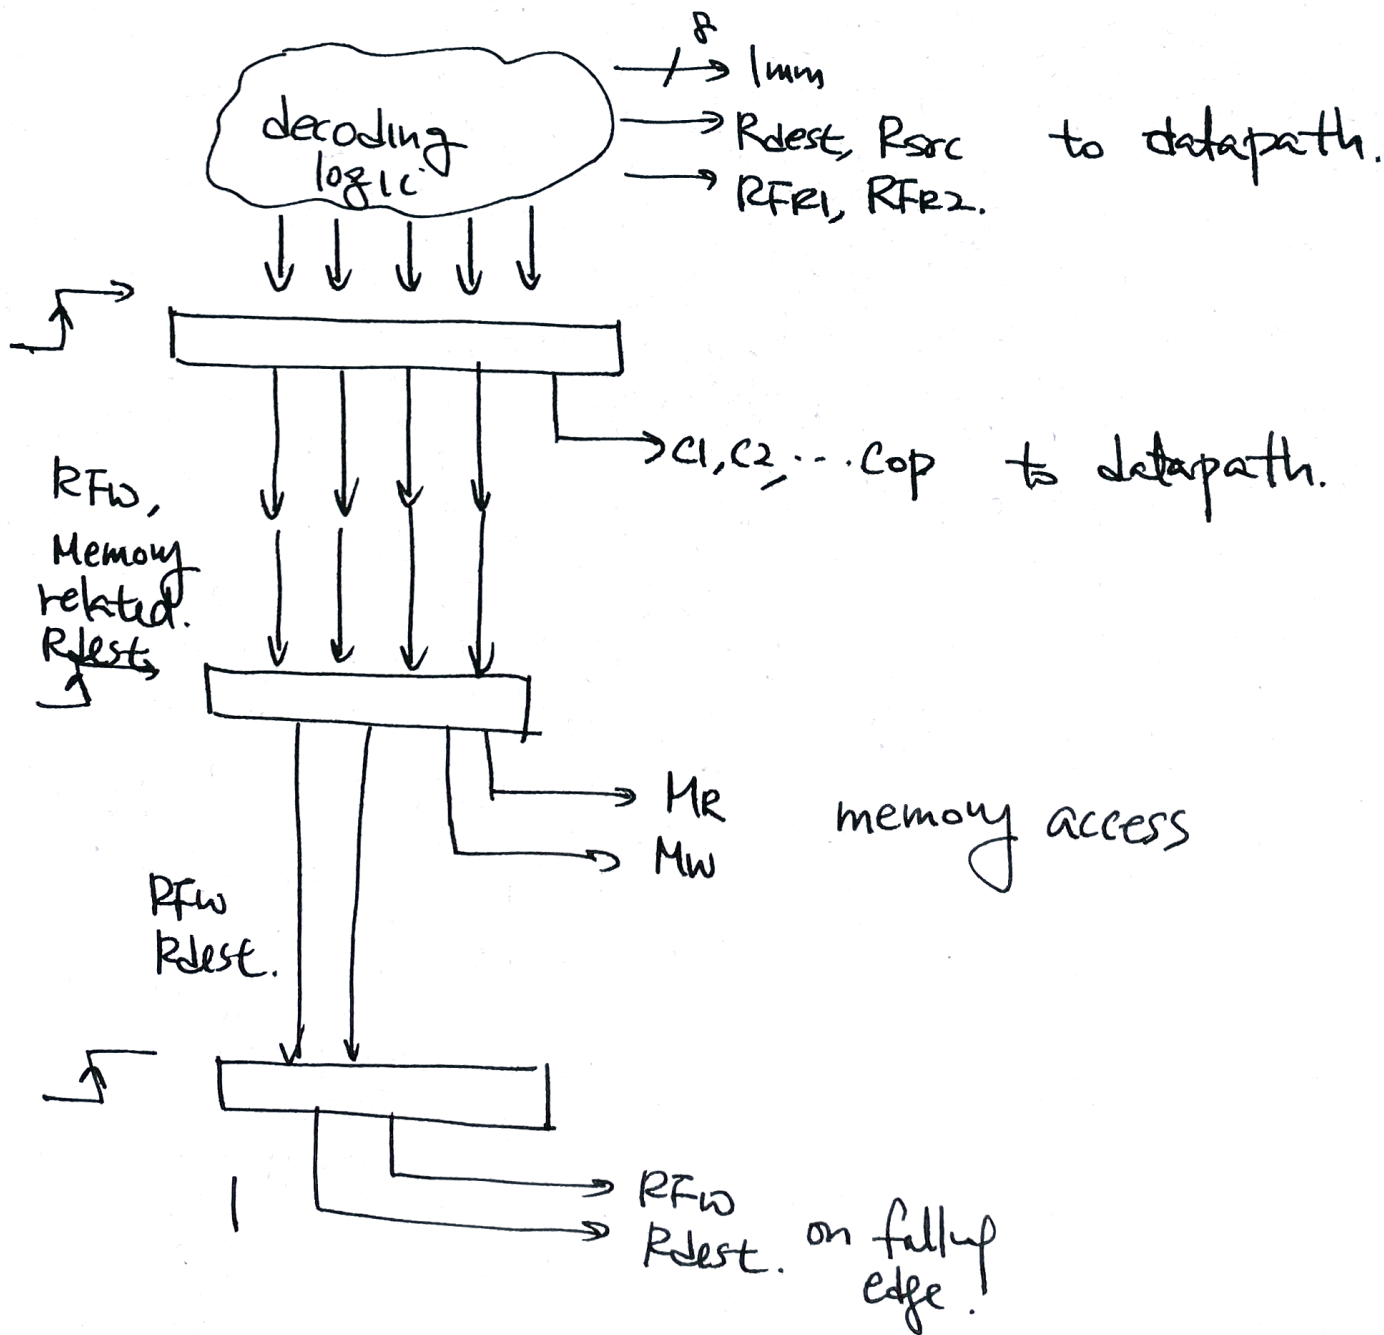 8
Imm
decoding
logic
Rdest, Rsrc to datapath.
RFR1, RFR2.
C1, C2, ... Cop to datapath.
RFW,
Memory
related.
Rdest
MR
memory access
MW
RFW
Rdest.
RFW
Rdest. on falling
edge.